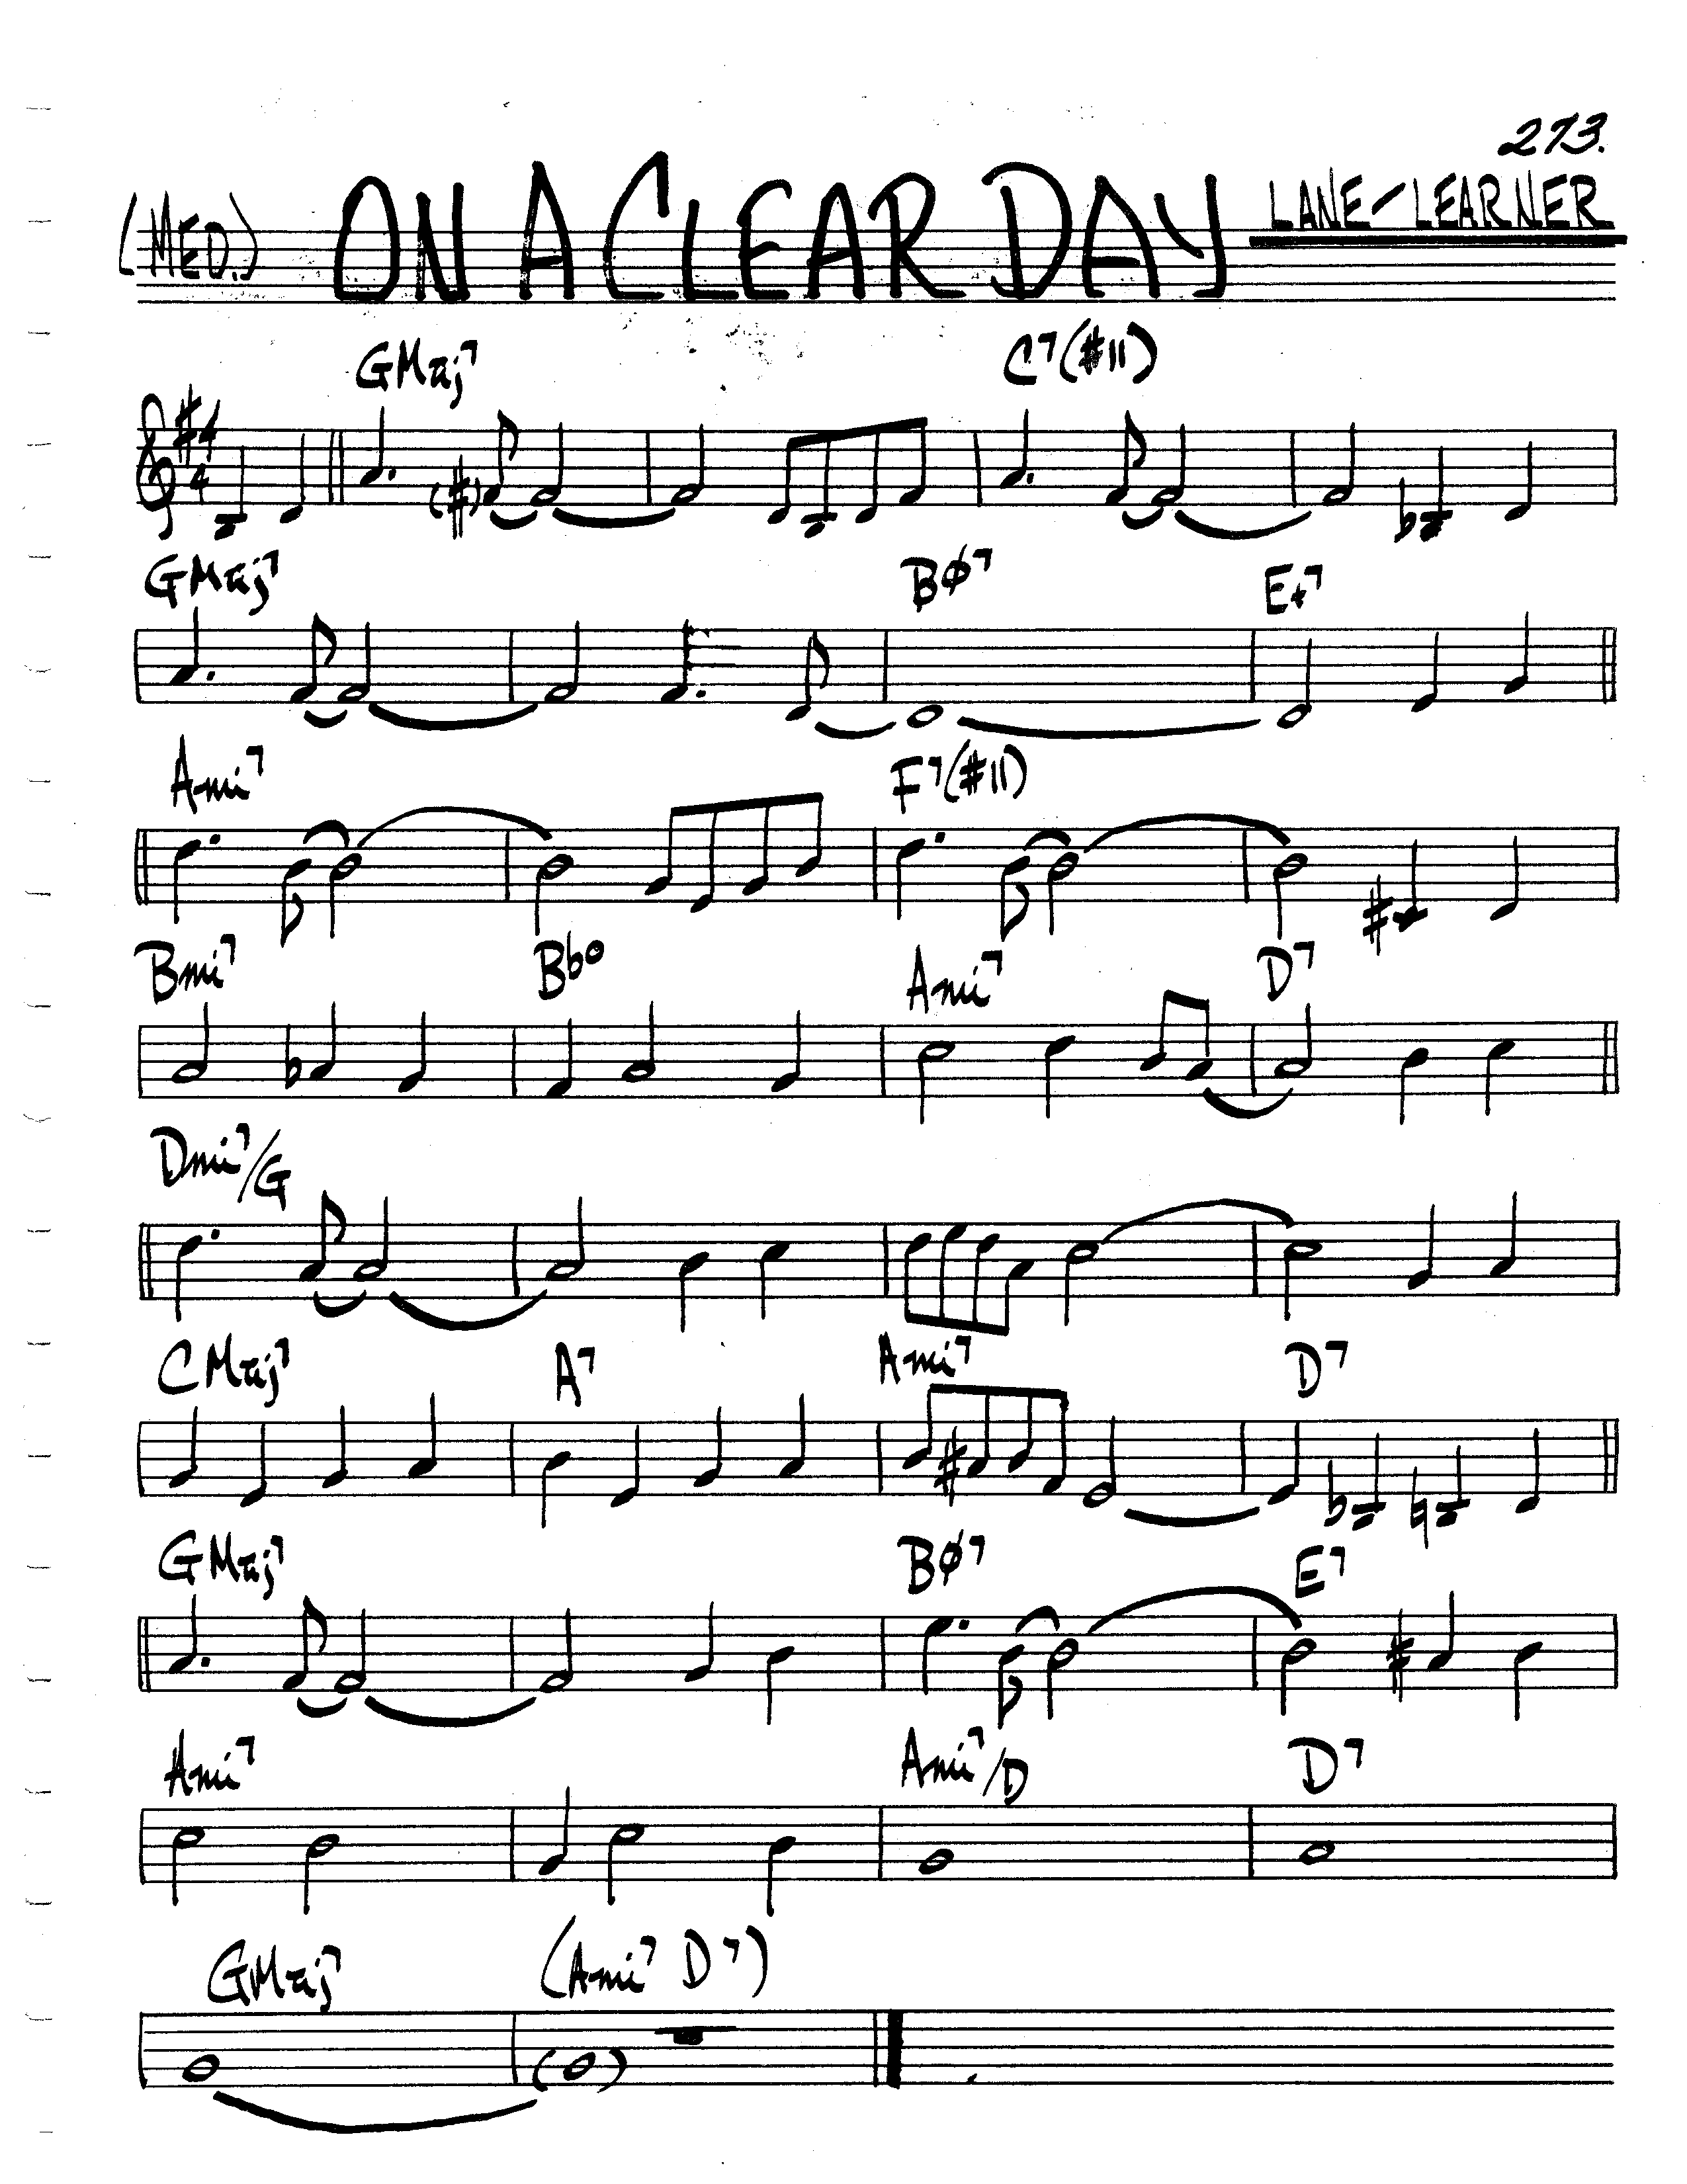 273.
(MED.) ON A CLEAR DAY LANE-LEARNER
GMaj7 C7(#11)
4
4
(#)
GMaj7 BØ7 E+7
Ami7 F7(#11)
Bmi7 Bb° Ami7 D7
Dmi7/G
CMaj7 A7 Ami7 D7
GMaj7 BØ7 E7
Ami7 Ami7/D D7
GMaj7 (Ami7 D7)